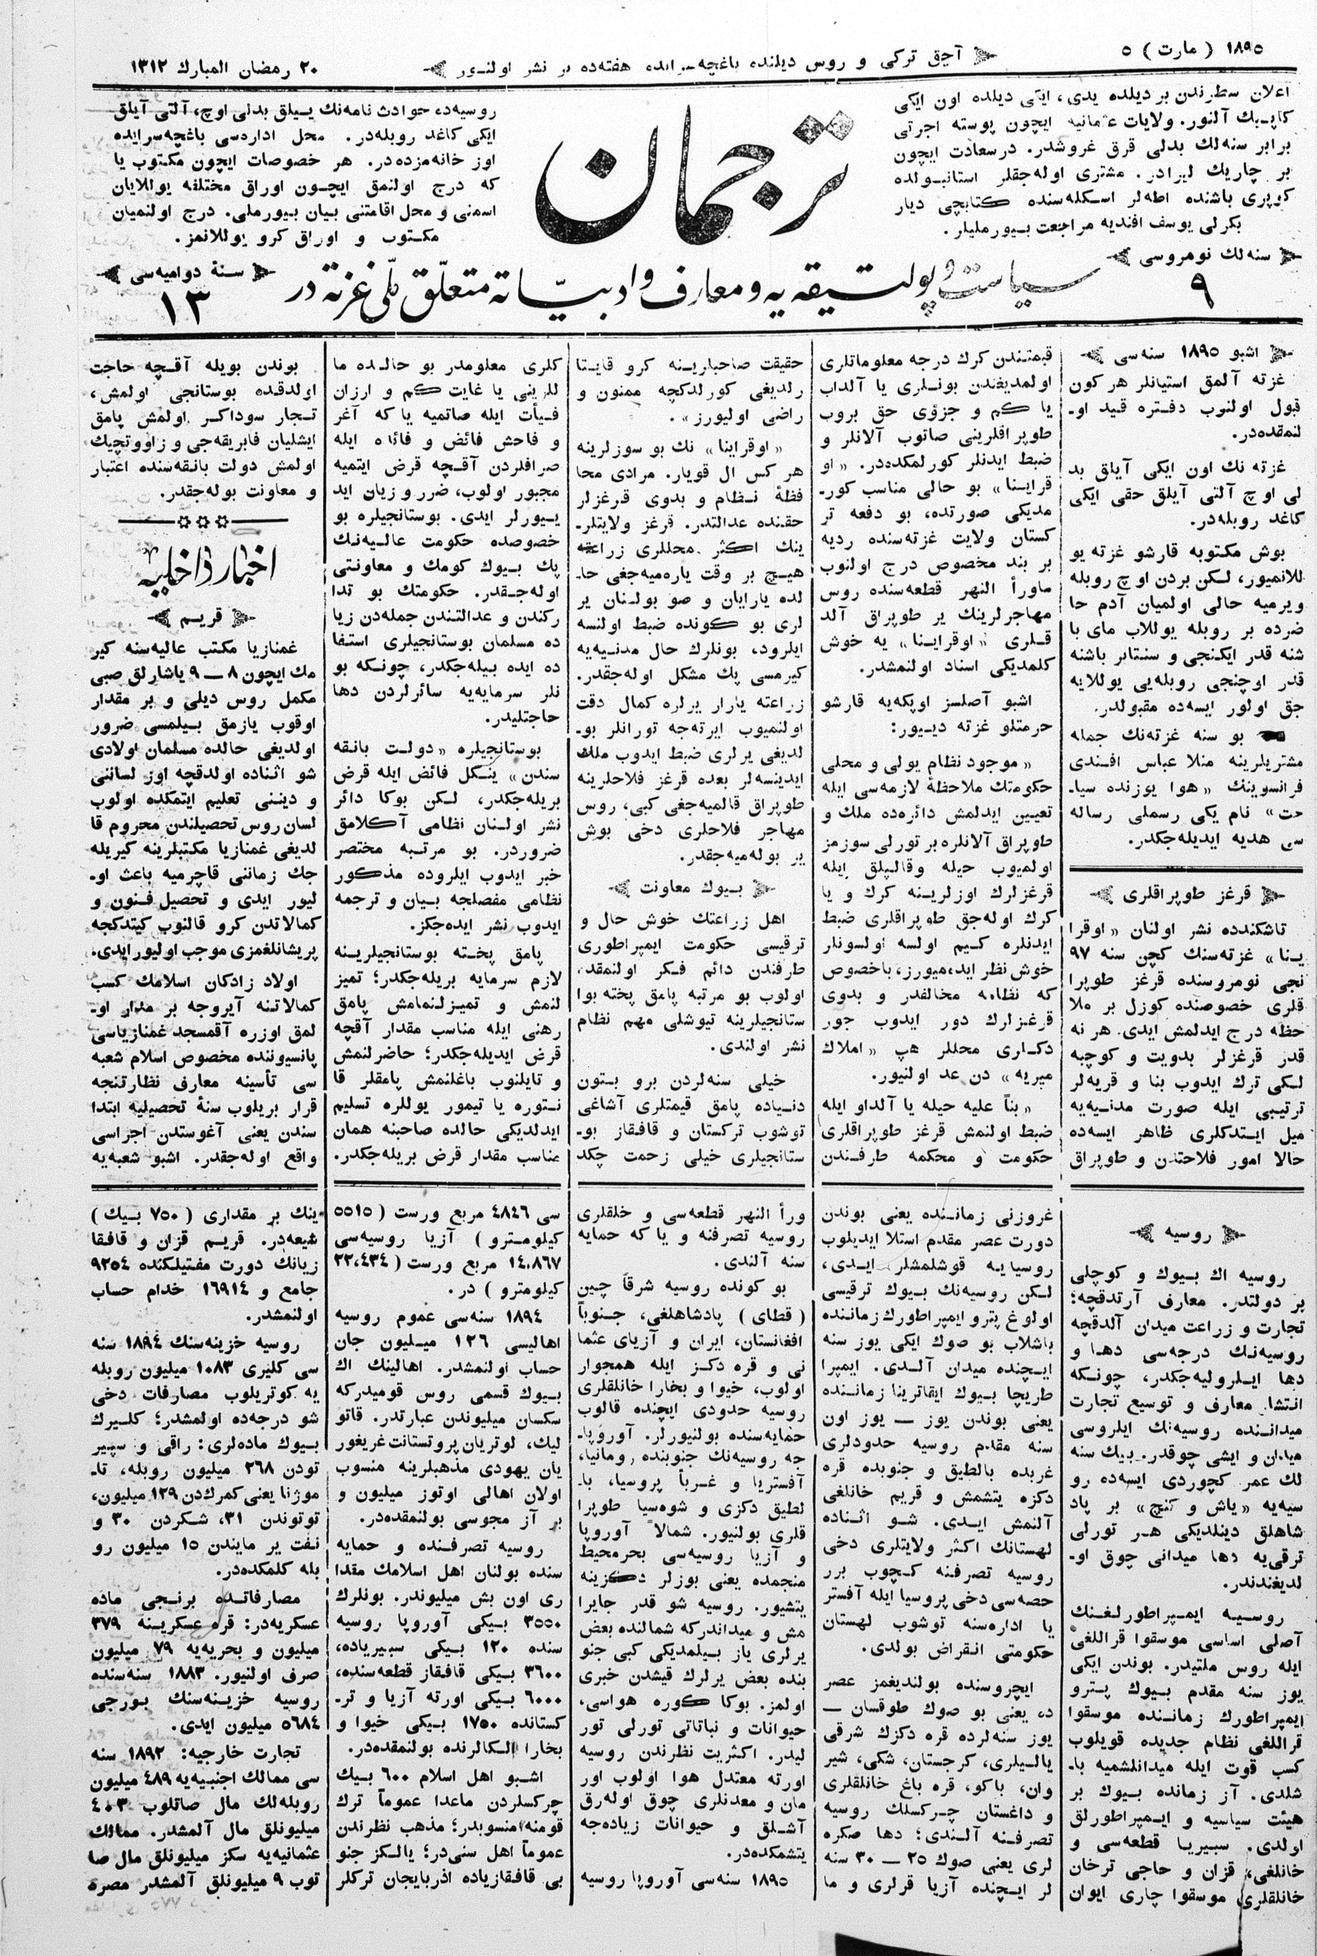 ١٨٩٥ ( مارت ) ٥
آچق تركی و روس دیلنده باغچه‌سرایده هفته‌ده بر نشر اولنور
٢٠ رمضان المبارك ١٣١٢
اعلان سطرندن بر دیلده یدی، ایكی دیلده اون ایكی
كاپیك آلنور. ولایات عثمانیه ایچون پوسته اجرتی
برابر سنه‌لك بدلی قرق غروشدر. درسعادت ایچون
بر چاریك لیرادر. مشتری اوله‌جقلر استانبولده
كوپری باشنده اطه‌لر اسكله‌سنده كتابچی دیار
بكرلی یوسف افندیه مراجعت بیورملیلر.
سنه‌لك نومروسی
٩
ترجمان
روسیه‌ده حوادث نامه‌نك ییلق بدلی اوچ، آلتی آیلق
ایكی كاغد روبله‌در. محل اداره‌سی باغچه‌سرایده
اوز خانه‌مزده‌در. هر خصوصات ایچون مكتوب یا
كه درج اولنمق ایچون اوراق مختلفه یوللایان
اسمنی و محل اقامتنی بیان بیورملی. درج اولنمیان
مكتوب و اوراق كرو یوللانمز.
سنهٔ دوامیه‌سی
١٣
سیاست و پولتیقه‌یه و معارف و ادبیاته متعلق ملی غزته‌در
اشبو ١٨٩٥ سنه‌سی
غزته آلمق استیانلر هركون
قبول اولنوب دفتره قید او‍
لنمقده‌در.
غزته نك اون ایكی آیلق بد
لی اوچ آلتی آیلق حقی ایكی
كاغد روبله‌در.
بوش مكتوبه قارشو غزته یو
للانمیور، لكن بردن اوچ روبله
ویرمیه حالی اولمیان آدم حا
ضرده بر روبله یوللاب مای با
شنه قدر ایكنجی و سنتابر باشنه
قدر اوچنجی روبله‌یی یوللایه
جق اولور ایسه‌ده مقبولدر.
بو سنه غزته‌نك جمله
مشتریلرینه منلا عباس افندی
فرانسوینك «هوا یوزنده سیا‍
حت» نام یكی رسملی رساله
سی هدیه ایدیله‌جكدر.
قرغز طوپراقلری
تاشكندده نشر اولنان «اوقرا
ینا» غزته‌سنك كچن سنه ٩٧
نجی نومروسنده قرغز طوپرا
قلری خصوصنده كوزل بر ملا
حظه درج ایدلمش ایدی. هر نه
قدر قرغزلر بدویت و كوچبه
لكی ترك ایدوب بنا و قریه‌لر
ترتیبی ایله صورت مدنیه‌یه
میل ایتدكلری ظاهر ایسه‌ده
حالا امور فلاحتدن و طوپراق
قیمتندن كرك درجه معلوماتلری
اولمدیغندن بونلری یا آلداب
یا كم و جزؤی حق بروب
طوپراقلرینی صاتوب آلانلر و
ضبط ایدنلر كورلمكده‌در. «او
قراینا» بو حالی مناسب كور‍
مدیكی صورتده، بو دفعه تر
كستان ولایت غزته‌سنده ردیه
بر بند مخصوص درج اولنوب
ماورأ النهر قطعه‌سنده روس
مهاجرلرینك یر طوپراق آلد
قلری «اوقراینا» یه خوش
كلمدیكی اسناد اولنمشدر.
اشبو آصلسز اوپكه‌یه قارشو
حرمتلو غزته دیور:
«موجود نظام یولی و محلی
حكومتك ملاحظهٔ لازمه‌سی ایله
تعیین ایدلمش دائره‌ده ملك و
طوپراق آلانلره بر تورلی سوزمز
اولمیوب حیله و قالپلق ایله
قرغزلرك اوزلرینه كرك و یا
كرك اوله‌جق طوپراقلری ضبط
ایدنلره كیم اولسه اولسونلر
خوش نظر ایده‌میورز، باخصوص
كه نظامه مخالفدر و بدوی
قرغزلرك دور ایدوب جور
دكاری محللر هپ «املاك
میریه» دن عد اولنیور.
«بنأ علیه حیله یا آلداو ایله
ضبط اولنمش قرغز طوپراقلری
حكومت و محكمه طرفندن
حقیقت صاحبلرینه كرو قایتا
رلدیغی كورلدكچه ممنون و
راضی اولیورز».
«اوقراینا» نك بو سوزلرینه
هر كس ال قویار. مرادی محا
فظهٔ نظام و بدوی قرغزلر
حقنده عدالتدر. قرغز ولایتلر‍
ینك اكثر محللری زراعته
هیچ بر وقت یاره‌میه‌جغی حا‍
لده یارایان و صو بولنان یر
لری بو كونده ضبط اولنسه
ایلرود، بونلرك حال مدنیه‌یه
كیرمسی پك مشكل اوله‌جقدر.
زراعته یارار یرلره كمال دقت
اولنمیوب ایرته‌جه تورانلر بو‍
لدیغی یرلری ضبط ایدوب ملك
ایدینسه‌لر بعده قرغز فلاحلرینه
طوپراق قالمیه‌جغی كبی، روس
مهاجر فلاحلری دخی بوش
یر بوله‌میه‌جقدر.
بیوك معاونت
اهل زراعتك خوش حال و
ترقیسی حكومت ایمپراطوری
طرفندن دائم فكر اولنمقده
اولوب بو مرتبه پامق پخته بوا
ستانجیلرینه تیوشلی مهم نظام
نشر اولندی.
خیلی سنه‌لردن برو بتون
دنیاده پامق قیمتلری آشاغی
توشوب تركستان و قافقاز بو‍
ستانجیلری خیلی زحمت چكد
كلری معلومدر بو حالده ما
للرینی یا غایت كم و ارزان
فیأت ایله صاتمیه یا كه آغر
و فاحش فائض و فائده ایله
صرافلردن آقچه قرض ایتمیه
مجبور اولوب، ضرر و زیان اید
یورلر ایدی. بوستانجیلره بو
خصوصده حكومت عالیه‌نك
پك بیوك كومك و معاونتی
اوله‌جقدر. حكومتك بو تدا
ركندن و عدالتندن جمله‌دن زیا
ده مسلمان بوستانجیلری استفا
ده ایده بیله‌جكدر، چونكه بو
نلر سرمایه‌یه سائرلردن دها
حاجتلیدر.
بوستانجیلره «دولت بانقه
سندن» ینكل فائض ایله قرض
بریله‌جكدر، لكن بوكا دائر
نشر اولنان نظامی آكلامق
ضروردر. بو مرتبه مختصر
خبر ایدوب ایلروده مذكور
نظامی مفصلجه بیان و ترجمه
ایدوب نشر ایده‌جكز.
پامق پخته بوستانجیلرینه
لازم سرمایه بریله‌جكدر؛ تمیز
لنمش و تمیزلنمامش پامق
رهنی ایله مناسب مقدار آقچه
قرض ایدیله‌جكدر؛ حاضرلنمش
و تایلنوب باغلنمش پامقلر قا
نتوره یا تیمور یوللره تسلیم
ایدلدیكی حالده صاحبنه همان
مناسب مقدار قرض بریله‌جكدر.
بوندن بویله آقچه حاجت
اولدقده بوستانجی اولمش،
تجار سوداكر اولمش پامق
ایشلیان فابریقه‌جی و زاووتچیك
اولمش دولت بانقه‌سنده اعتبار
و معاونت بوله‌جقدر.
اخبار داخلیه
قریم
غمنازیا مكتب عالیه‌سنه كیر
مك ایچون ٨ – ٩ یاشارلق صبی
مكمل روس دیلی و بر مقدار
اوقوب یازمق بیلمسی ضرور
اولدیغی حالده مسلمان اولادی
شو اثناده اولدقچه اوز لساننی
و دیننی تعلیم ایتمكده اولوب
لسان روس تحصیلندن محروم قا
لدیغی غمنازیا مكتبلرینه كیریله
جك زماننی قاچرمیه باعث او‍
لیور ایدی و تحصیل فنون و
كمالاتدن كرو قالنوب كیتدكچه
پریشانلغمزی موجب اولیور ایدی.
اولاد زادكان اسلامك كسب
كمالاتنه آیروجه بر مدار او‍
لمق اوزره آقمسجد غمنازیاسی
پانسیوننده مخصوص اسلام شعبه
سی تأسینه معارف نظارتنجه
قرار بریلوب سنهٔ تحصیلیه ابتدا
سندن یعنی آغوستدن اجراسی
واقع اوله‌جقدر. اشبو شعبه‌یه
روسیه
روسیه اك بیوك و كوچلی
بر دولتدر. معارف آرتدقچه؛
تجارت و زراعت میدان آلدقچه
روسیه‌نك درجه‌سی دها و
دها ایلرولیه‌جكدر، چونكه
انتشا. معارف و توسیع تجارت
میداننده روسیه‌نك ایلروسی
میدان و ایشی چوقدر. بیك سنه
لك عمر كچوردی ایسه‌ده رو
سیه‌یه «یاش و كنج» بر پاد
شاهلق دینلدیكی هر تورلی
ترقی‌یه دها میدانی چوق او‍
لدیغندندر.
روسیه ایمپراطورلغنك
آصلی اساسی موسقوا قراللغی
ایله روس ملتیدر. بوندن ایكی
یوز سنه مقدم بیوك پترو
ایمپراطورك زمانده موسقوا
قراللغی نظام جدیده قویلوب
كسب قوت ایله میدانلشمیه با‍
شلدی. آز زمانده بیوك بر
هیئت سیاسیه و ایمپراطورلق
اولدی. سبیریا قطعه‌سی و
خانلغی، قزان و حاجی ترخان
خانلقلری موسقوا چاری ایوان
غروزنی زماننده یعنی بوندن
دورت عصر مقدم استلا ایدیلوب
روسیایه قوشلمشلر ایدی،
لكن روسیه‌نك بیوك ترقیسی
اولوغ پترو ایمپراطورك زماننده
باشلاب بو صوك ایكی یوز سنه
ایچنده میدان آلدی. ایمپرا
طریچا بیوك ایقاترینا زماننده
یعنی بوندن یوز – یوز اون
سنه مقدم روسیه حدودلری
غربده بالطیق و جنوبده قره
دكزه یتشمش و قریم خانلغی
آلنمش ایدی. شو اثناده
لهستانك اكثر ولایتلری دخی
روسیه تصرفنه كچوب برر
حصه‌سی دخی پروسیا ایله آفستر
یا اداره‌سنه توشوب لهستان
حكومتی انقراض بولدی.
ایچروسنده بولندیغمز عصر
ده، یعنی بو صوك طوقسان –
یوز سنه‌لرده قره دكزك شرقی
یالیلری، كرجستان، شكی، شیر
وان، باكو، قره باغ خانلقلری
و داغستان چركسلك روسیه
تصرفنه آلندی؛ دها صكره
لری یعنی صوك ٢٥ – ٣٠ سنه
لر ایچنده آزیا قرلری و ما
ورأ النهر قطعه‌سی و خلقلری
روسیه تصرفنه و یا كه حمایه
سنه آلندی.
بو كونده روسیه شرقاً چین
(قطای) پادشاهلغی، جنوباً
افغانستان، ایران و آزیای عثما
نی و قره دكز ایله همجوار
اولوب، خیوا و بخارا خانلقلری
روسیه حدودی ایچنده قالوب
حمایه‌سنده بولنیورلر. آوروپا‍
جه روسیه‌نك جنوبنده رومانیا،
آفستریا و غرباً پروسیا، با‍
لطیق دكزی و شوه‌سیا طوپرا
قلری بولنیور. شمالاً آوروپا
و آزیا روسیه‌سی بحرمحیط
منجمده یعنی بوزلر دكزینه
یتشیور. روسیه شو قدر جایرا
مش و میداندركه شمالنده بعض
یرلری یاز بیلمدیكی كبی جنو
بنده بعض یرلرك قیشدن خبری
اولمز. بوكا كوره هواسی،
حیوانات و نباتاتی تورلی تور
لیدر. اكثریت نظرندن روسیه
اورته معتدل هوا اولوب اور
مان و معدنلری چوق اوله‌رق
آشلق و حیوانات زیاده‌جه
یتشمكده‌در.
١٨٩٥ سنه‌سی آوروپا روسیه
سی ٤٨٤٦ مربع ورست (٥٥١٥
كیلومترو) آزیا روسیه‌سی
١٤،٨٦٧ مربع ورست (٢٢،٤٣٤
كیلومترو) در.
١٨٩٤ سنه‌سی عموم روسیه
اهالیسی ١٢٦ میلیون جان
حساب اولنمشدر. اهالینك اك
بیوك قسمی روس قومیدركه
سكسان میلیوندن عبارتدر. قاتو
لیك، لوتریان پروتستانت غریغور
یان یهودی مذهبلرینه منسوب
اولان اهالی اوتوز میلیون و
بر آز مجوسی بولنمقده‌در.
روسیه تصرفنده و حمایه
سنده بولنان اهل اسلامك مقدا
ری اون بش میلیوندر. بونلرك
٣٥٥٠ بیكی آوروپا روسیه
سنده ١٢٠ بیكی سبیریاده،
٣٦٠٠ بیكی قافقاز قطعه‌سنده،
٦٠٠٠ بیكی اورته آزیا و تر‍
كستانده ١٧٥٠ بیكی خیوا و
بخارا الكالرنده بولنمقده‌در.
اشبو اهل اسلام ٦٠٠ بیك
چركسلردن ماعدا عموماً ترك
قومنه منسوبدر؛ مذهب نظرندن
عموماً اهل سنی‌در؛ یالكز جنو
بی قافقازیاده اذربایجان تركلر
ینك بر مقداری (٧٥٠ بیك)
شیعه‌در. قریم قزان و قافقا
زیانك دورت مفتیلكنده ٩٢٥٤
جامع و ١٦٩١٤ خدام حساب
اولنمشدر.
روسیه خزینه‌سنك ١٨٩٤ سنه
سی كلیری ١٠٨٣ میلیون روبله
یه كوتریلوب مصارفات دخی
شو درجه‌ده اولمشدر؛ كلیرك
بیوك ماده‌لری: راقی و سپیر
تودن ٢٦٨ میلیون روبله، تا‍
موژنا یعنی كمركدن ١٢٩ میلیون،
توتوندن ٣١، شكردن ٣٠ و
نفت یر مایندن ١٥ میلیون رو
بله كلمكده‌در.
مصارفاتده برنجی ماده
عسكریه‌در: قره عسكرینه ٢٧٩
میلیون و بحریه‌یه ٧٩ میلیون
صرف اولنیور. ١٨٨٣ سنه‌سنده
روسیه خزینه‌سنك بورجی
٥٦٨٤ میلیون ایدی.
تجارت خارجیه: ١٨٩٢ سنه
سی ممالك اجنبیه‌یه ٤٨٩ میلیون
روبله‌لك مال صاتلوب ٤٠٣
میلیونلق مال آلمشدر. ممالك
عثمانیه‌یه سكز میلیونلق مال صا
توب ٩ میلیونلق آلمشدر مصره